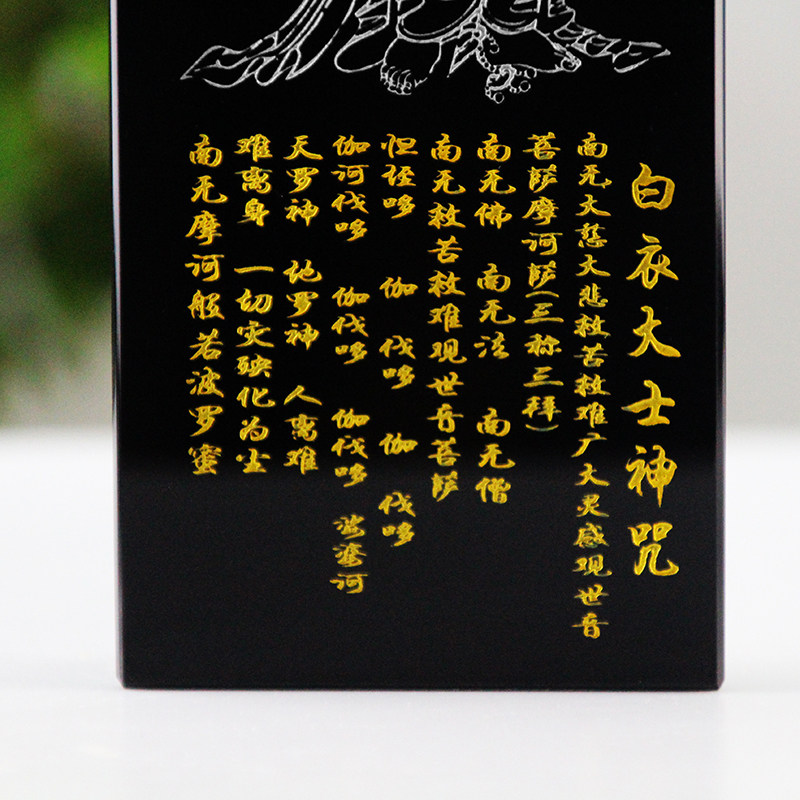 白衣大士神咒
南无大慈大悲救苦救难广大灵感观世音
菩萨摩诃萨(三称三拜)
南无佛 南无法 南无僧
南无救苦救难观世音菩萨
怛垤哆 伽 伐哆 伽 伐哆
伽诃伐哆 伽伐哆 伽伐哆 娑婆诃
天罗神 地罗神 人离难
难离身 一切灾殃化为尘
南无摩诃般若波罗蜜